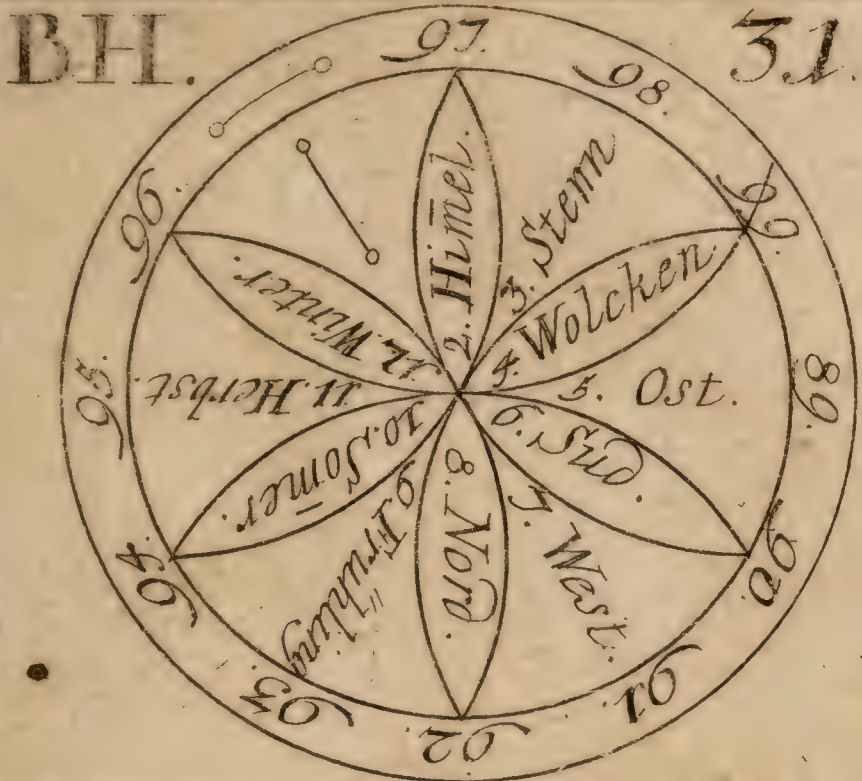 BH.
31.
97.
98.
99.
89.
90.
91.
92.
93.
94.
95.
96.
2. Him̄el.
3. Stern
4. Wolcken.
5. Ost.
6. Sud.
7. West.
8. Nord.
9. Frühling
10. Som̄er.
11. Herbst.
12. Winter.